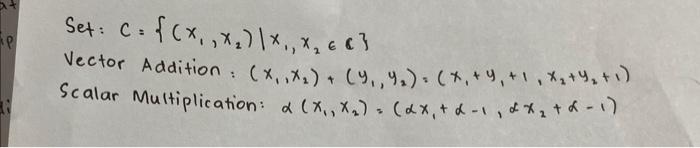 Set: C = {(x₁,x₂) | x₁, x₂ ∈ ℂ}
Vector Addition : (x₁,x₂) + (y₁,y₂) = (x₁+y₁+1, x₂+y₂+1)
Scalar Multiplication: α(x₁,x₂) = (αx₁+α-1, αx₂+α-1)